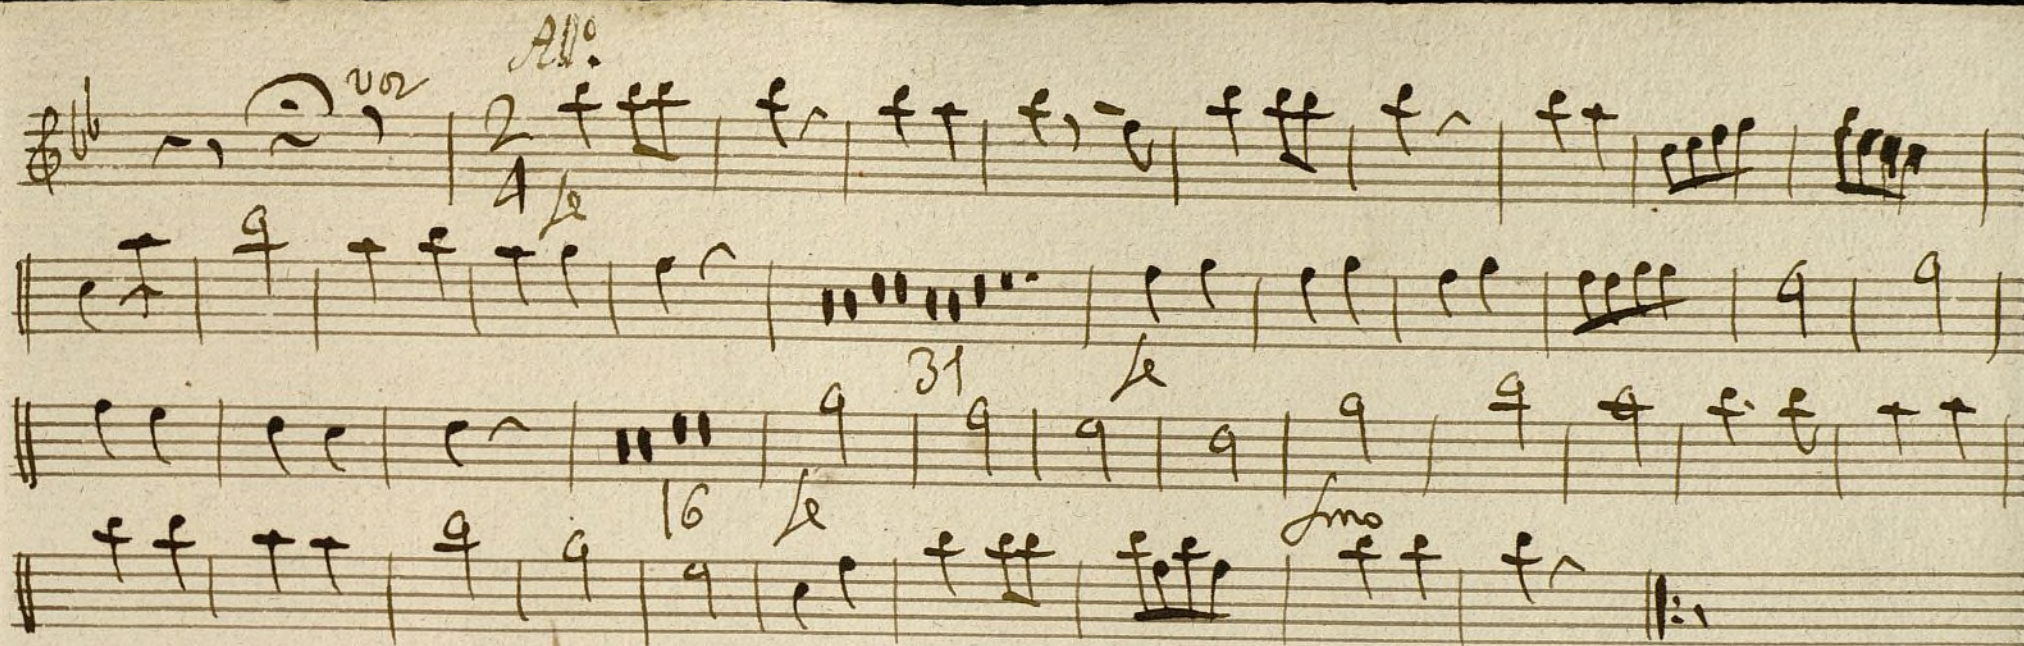 All.º
voz
2
4 fe
31 fe
16 fe fmo